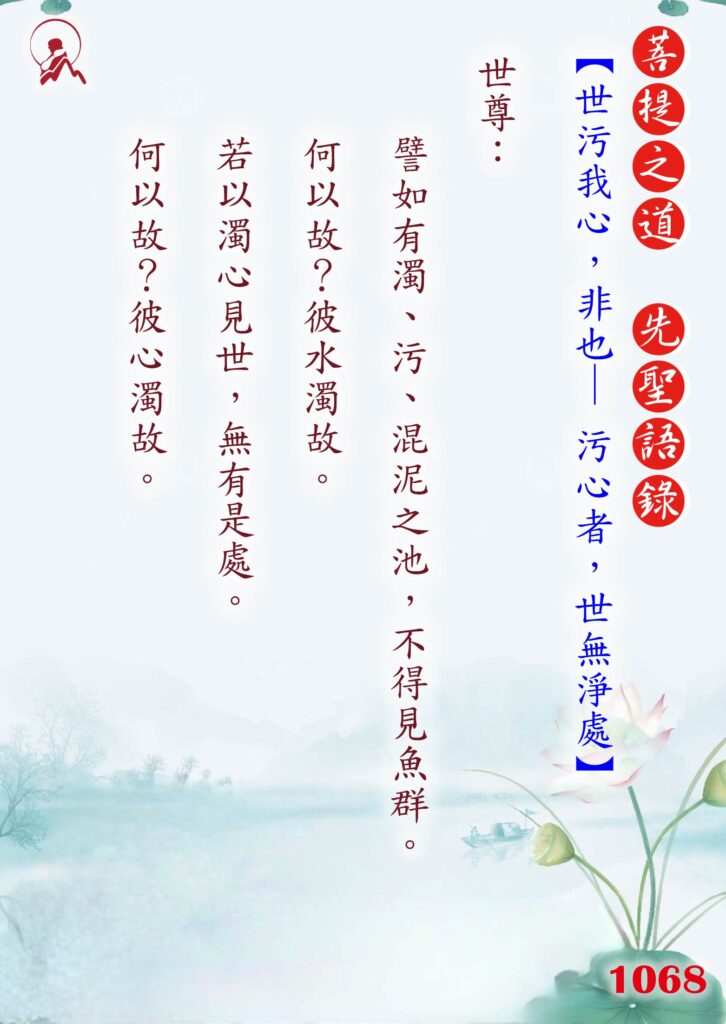 菩提之道 先聖語錄
【世污我心，非也— 污心者，世無淨處】
世尊：
譬如有濁、污、混泥之池，不得見魚群。
何以故？彼水濁故。
若以濁心見世，無有是處。
何以故？彼心濁故。
1068